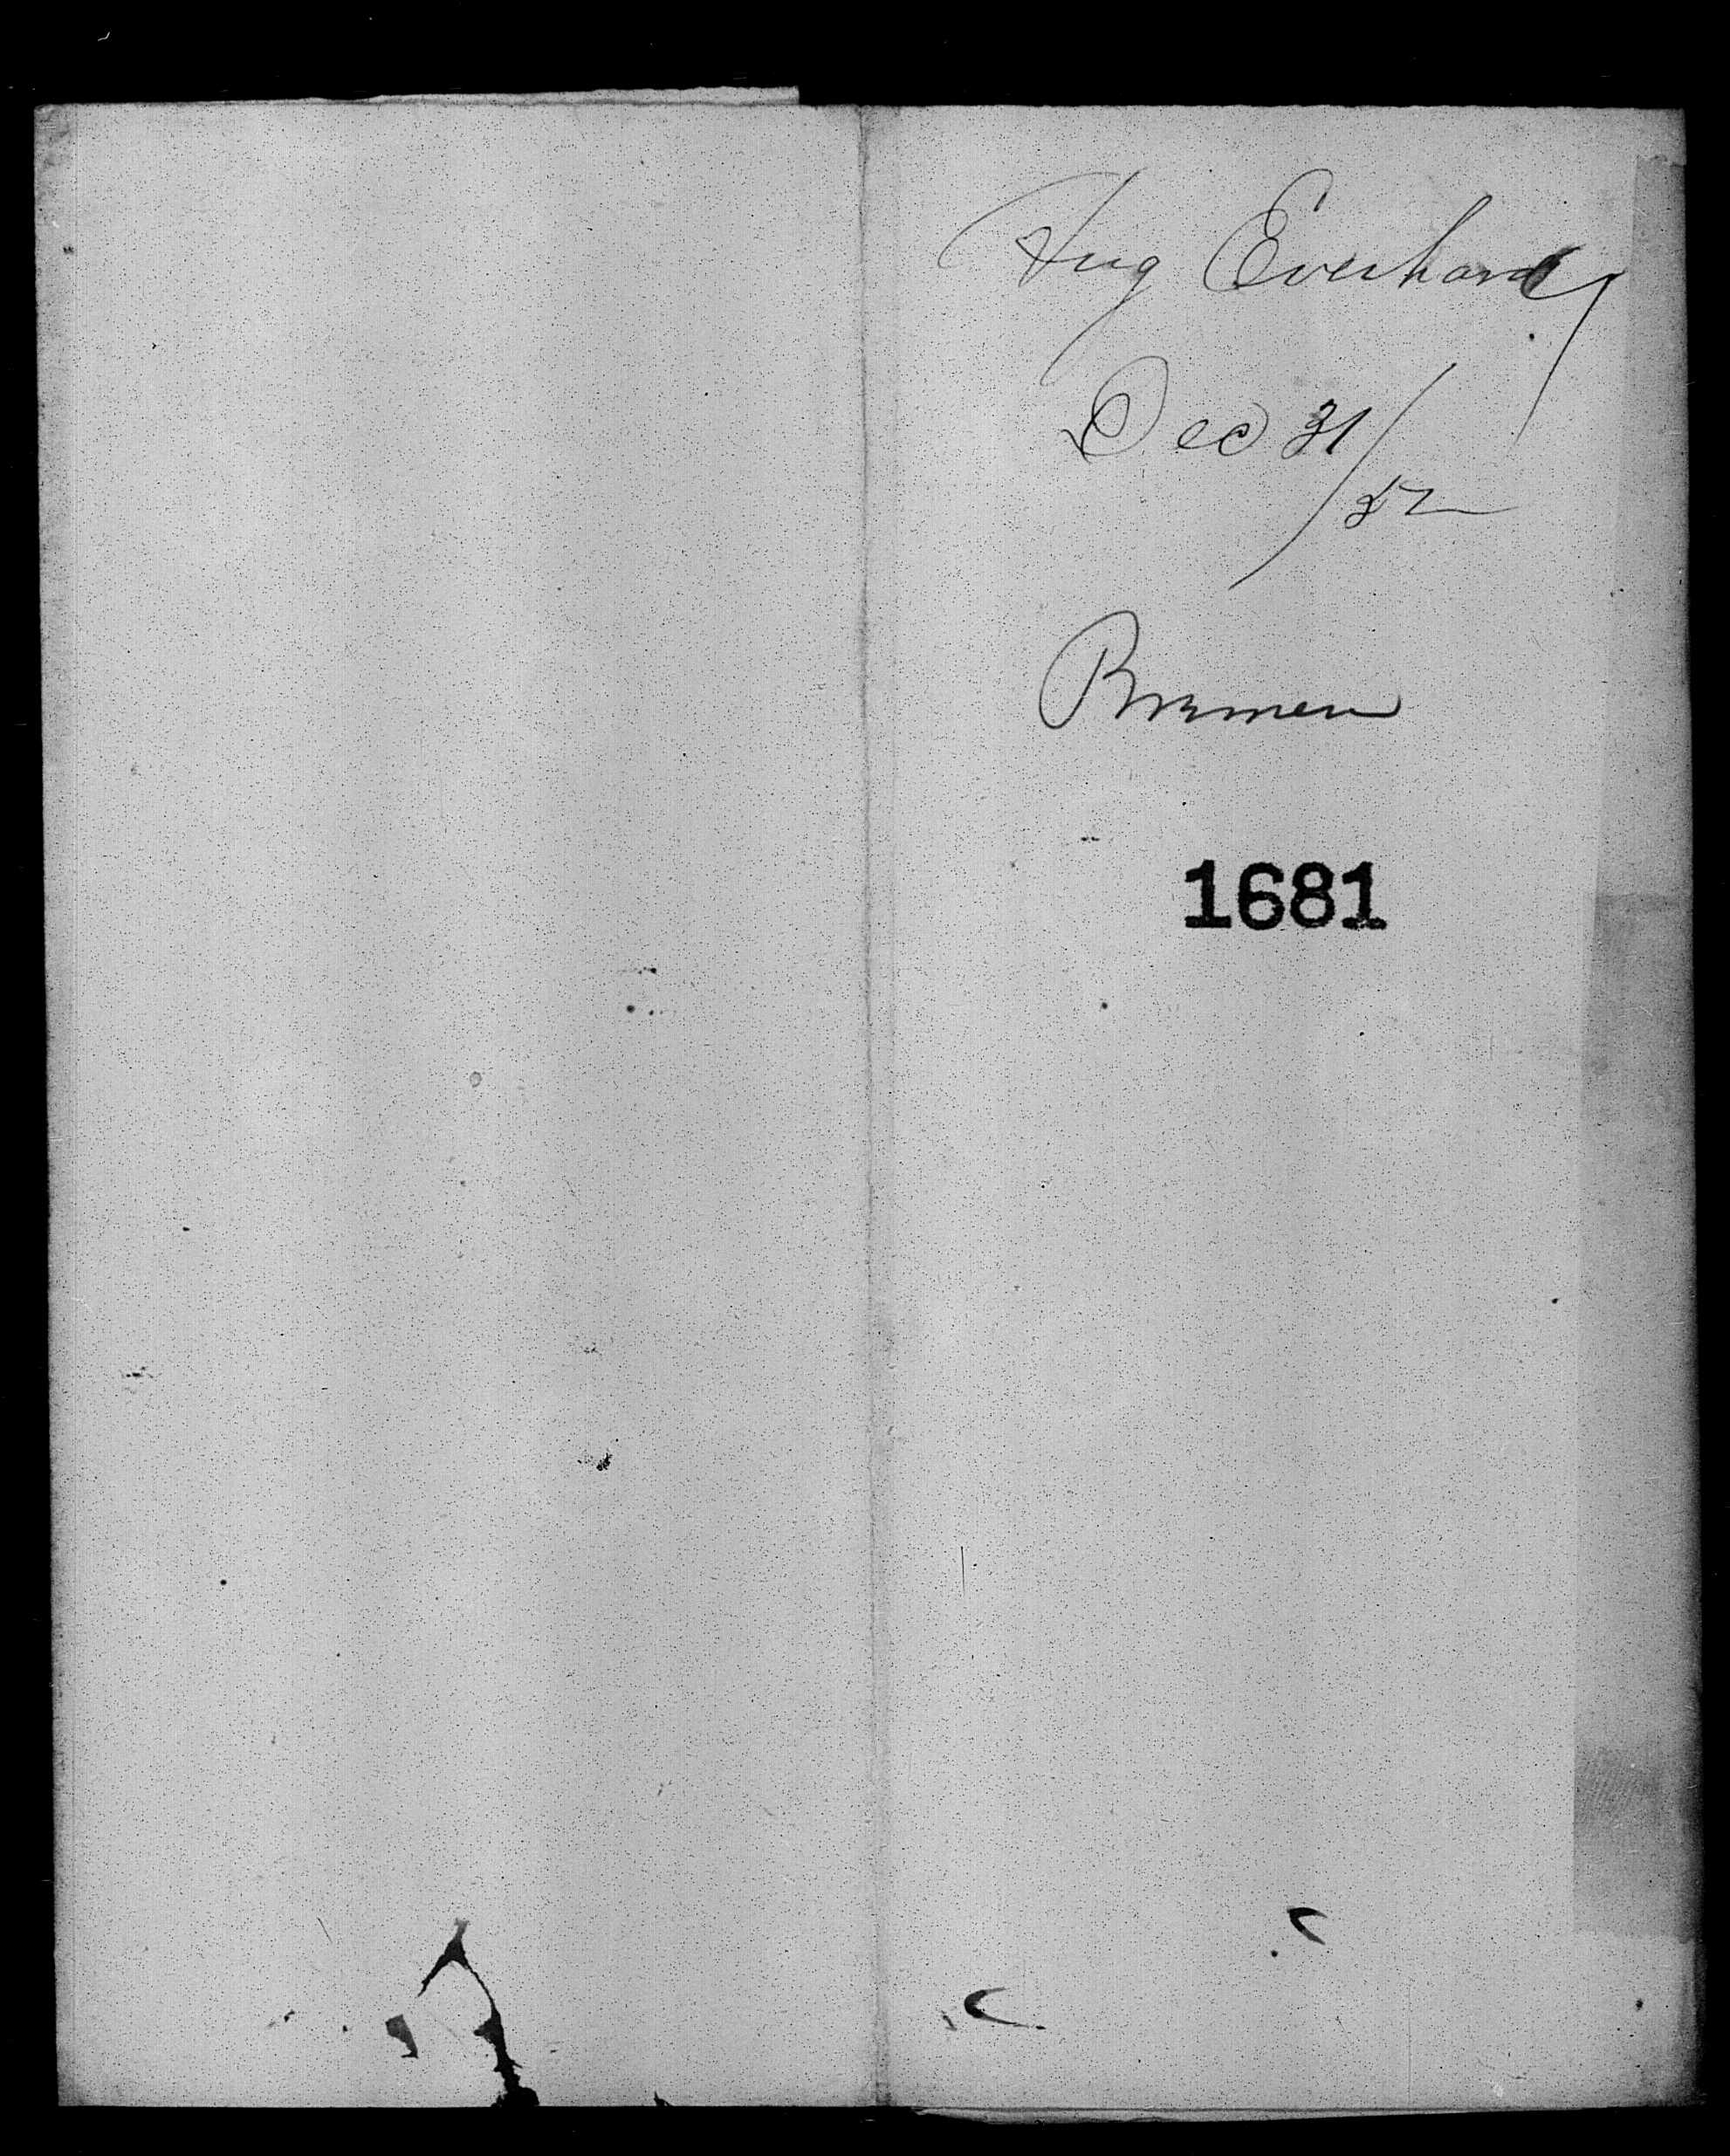 Aug Everhard
Dec 31/52
Bremen
1681